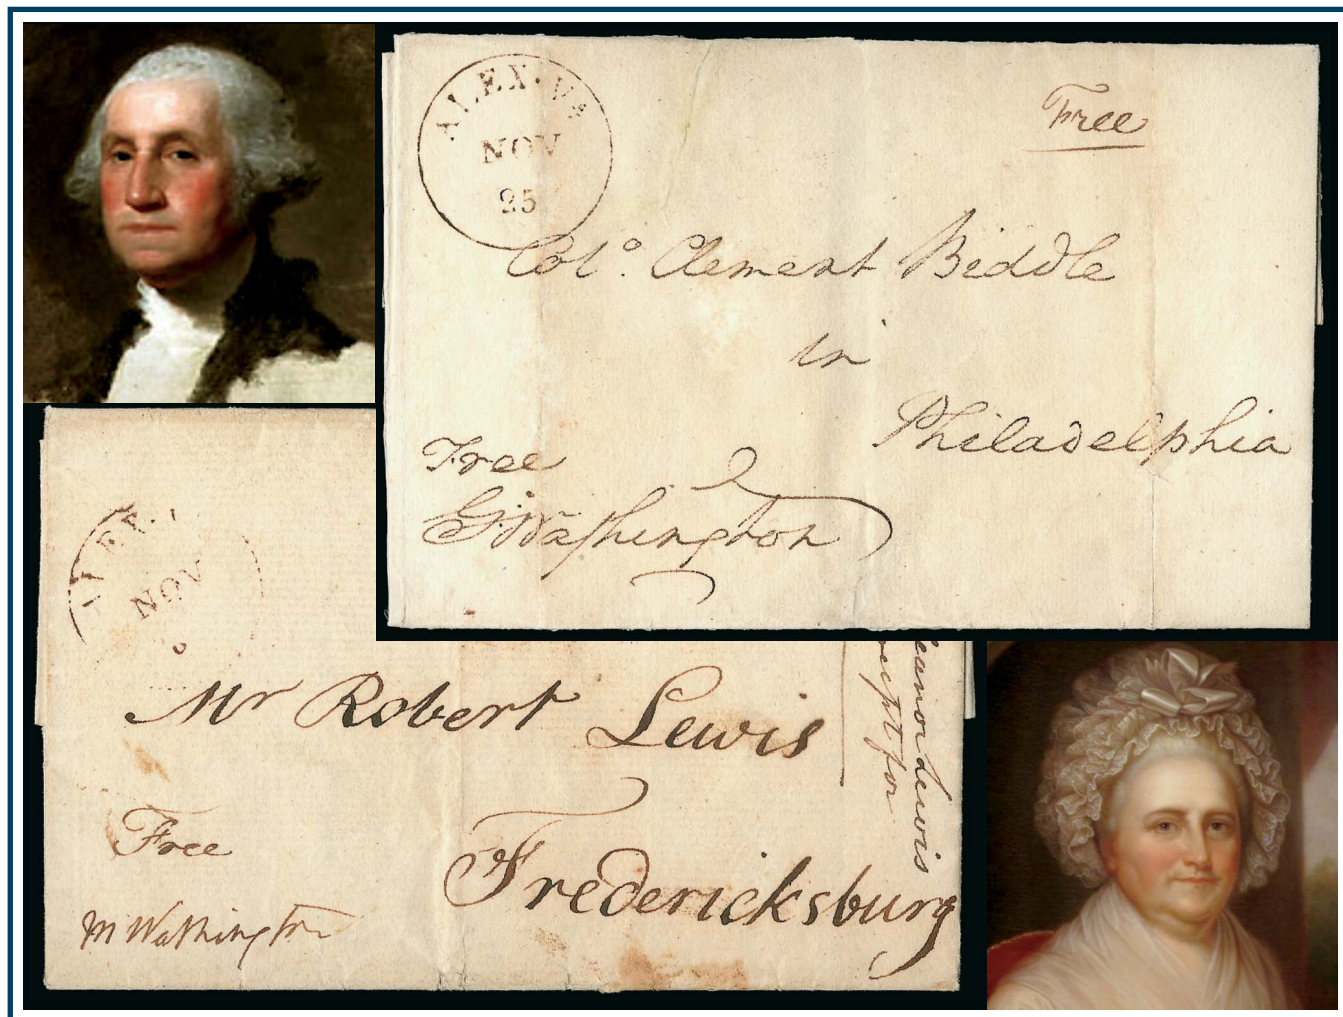 ALEX. Va
NOV
25
Free
Colo. Clement Biddle
in
Philadelphia
Free
G:Washington
ALEX.
NOV
Mr Robert Lewis
Free
Fredericksburg
M Washington
Lewis
for